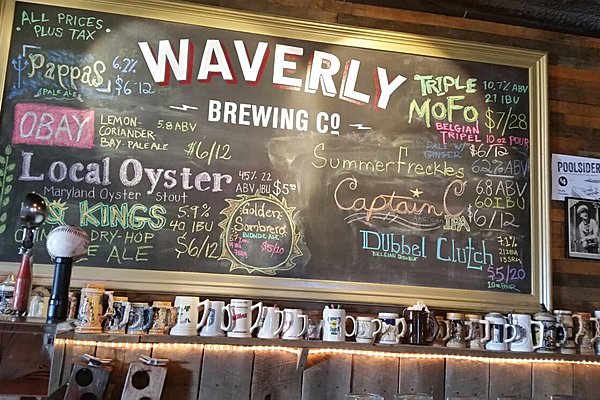 ALL PRICES
PLUS TAX
WAVERLY
BREWING CO
PAPPAS
6.2%
$6/12
PALE ALE
OBAY
LEMON-
CORIANDER,
BAY-PALE ALE
5.8 ABV
$6/12
Local Oyster
Maryland Oyster Stout
4.5%
ABV
22
IBU
$5
KINGS
DRY-HOP
ALE
5.9%
40 IBU
$6/12
Golden
Sombrero
BLONDE ALE
$5/10
TRIPLE
MOFO
BELGIAN
TRIPEL
10.7% ABV
21 IBU
$7/28
10 OZ POUR
PALE W/
GINGER
$6/12
SummerFreckles
6.2% ABV
Captain C
IPA
6.8 ABV
60 IBU
$6/12
Dubbel Clutch
BELGIAN DOUBLE
7.1%
ABV
$5/20
10 OZ POUR
POOLSIDE